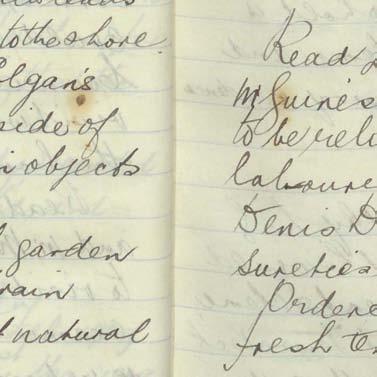 to the shore
olgan's
side of
objects
garden
rain
natural
Read
McGuines
to be reli
laboure
Denis D
sureties
Ordere
fresh te